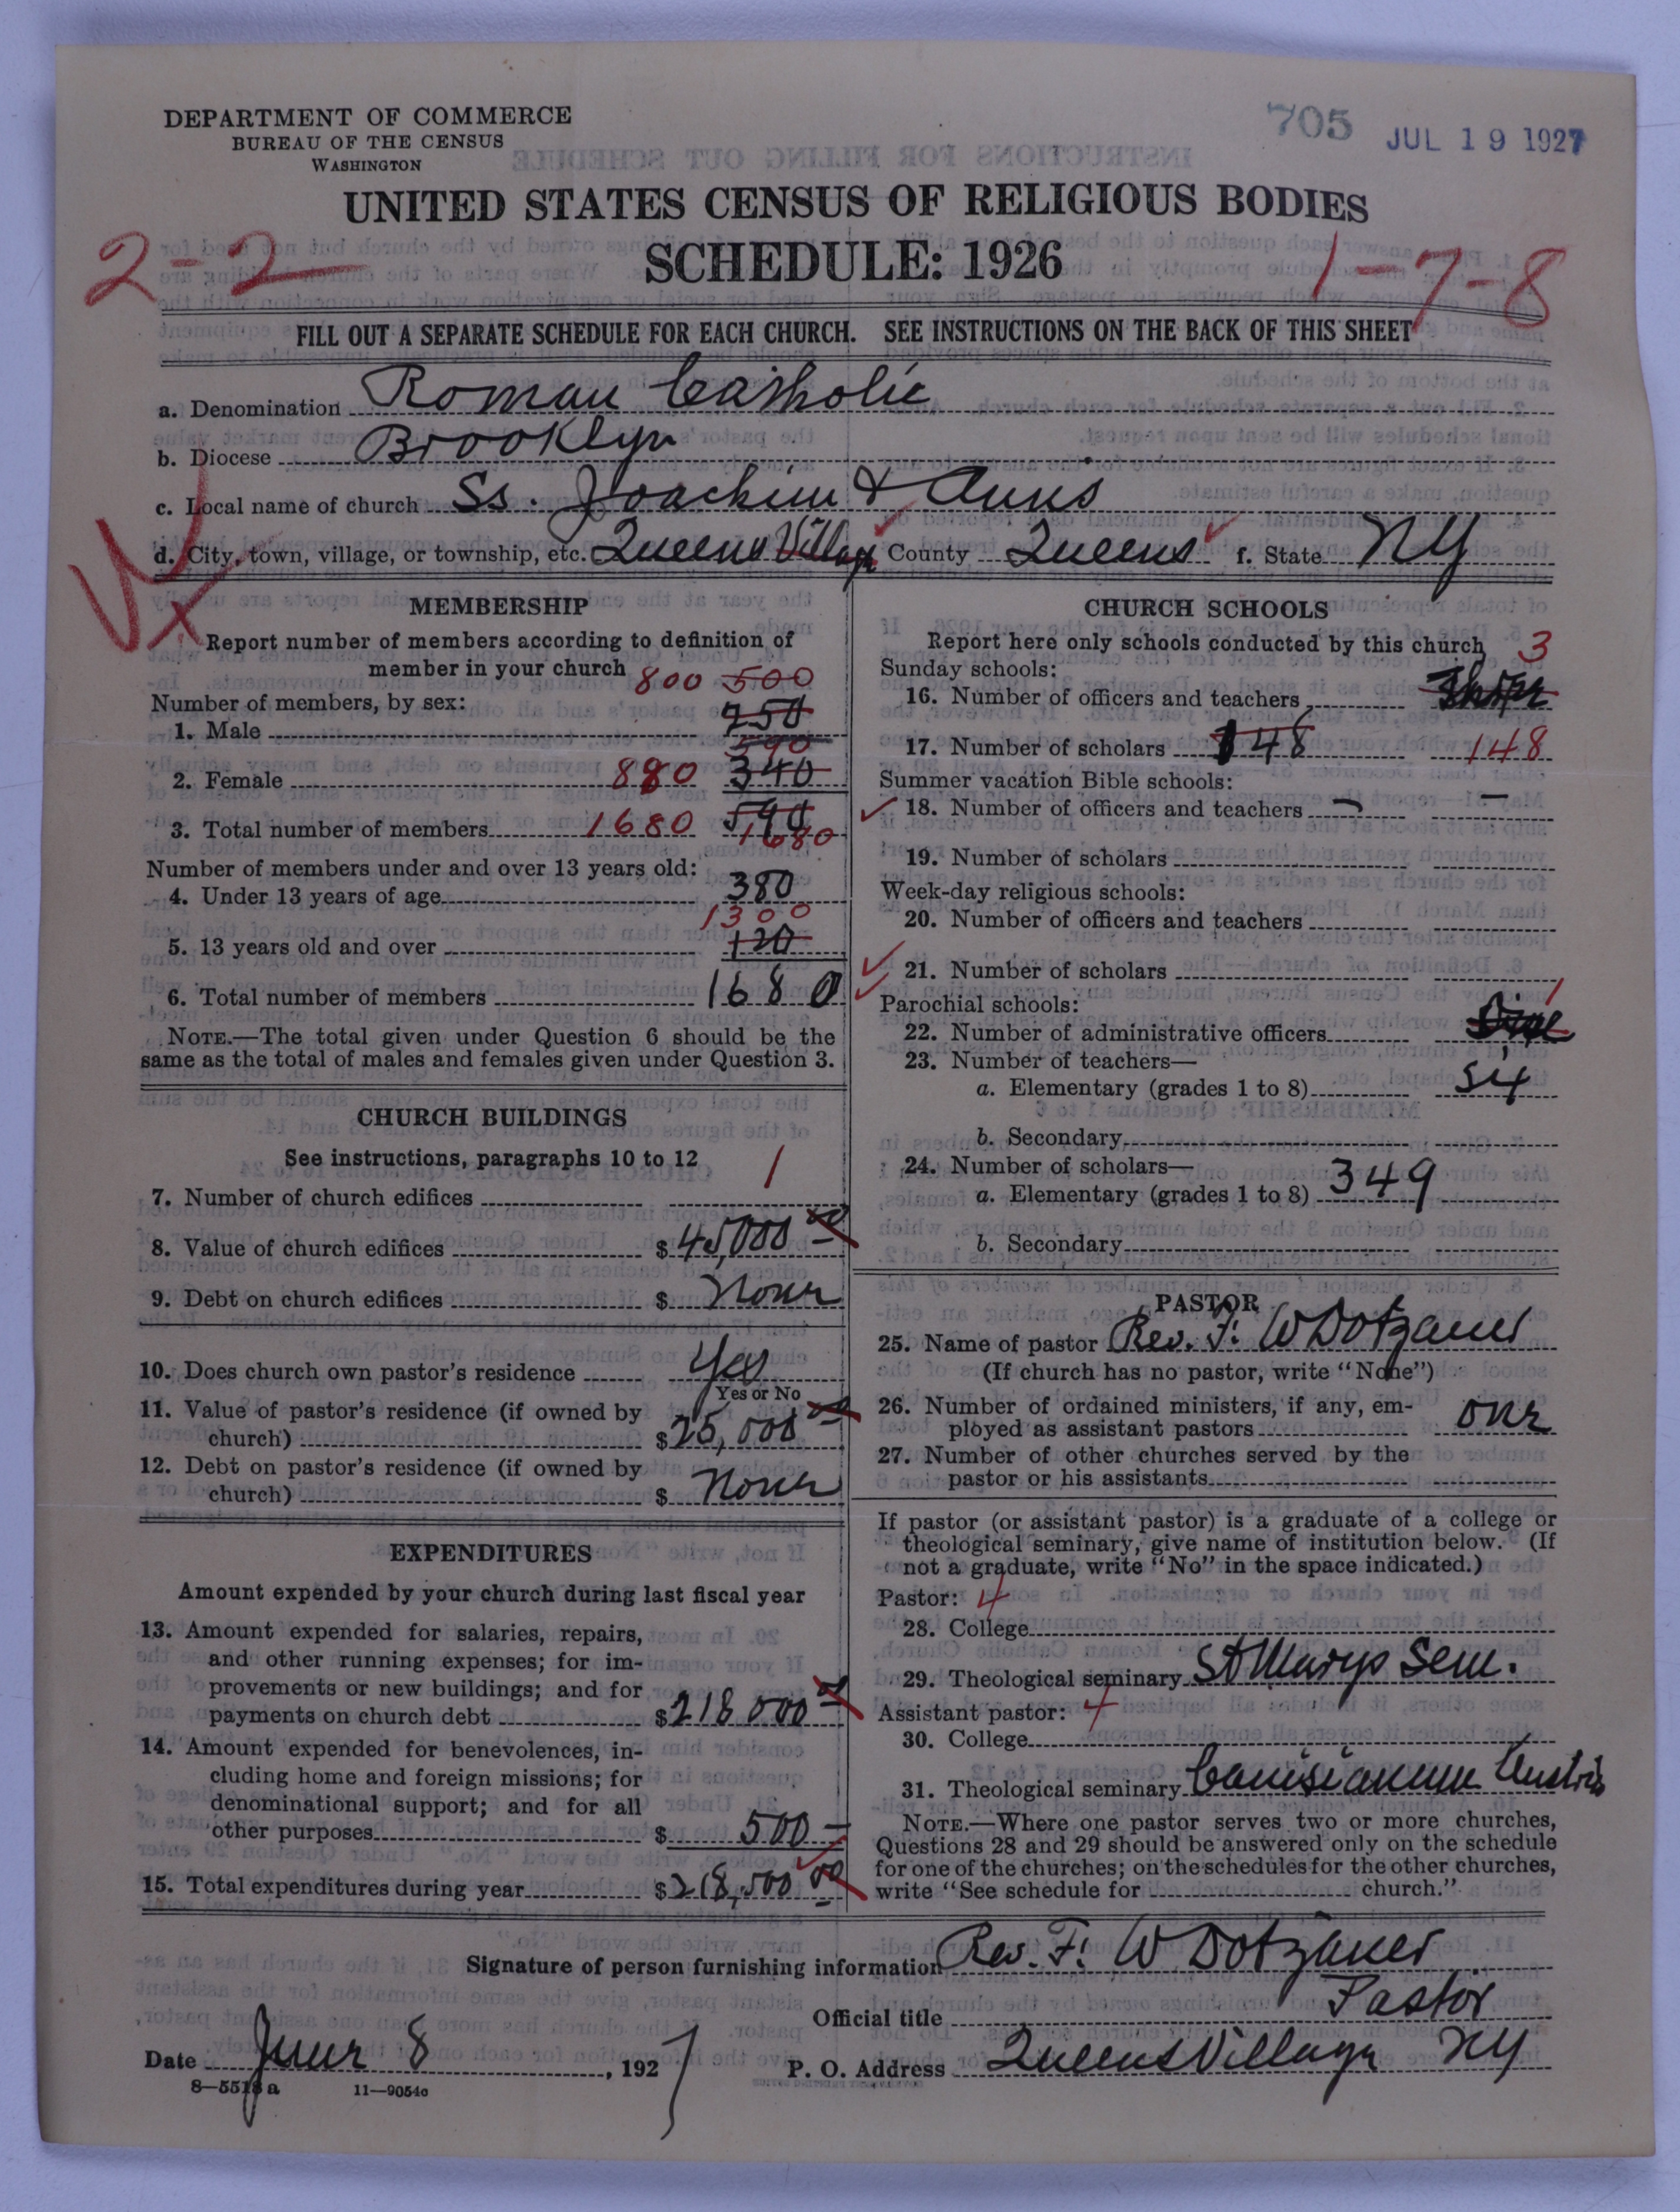 DEPARTMENT OF COMMERCE
BUREAU OF THE CENSUS
WASHINGTON
705 JUL 19 1927
UNITED STATES CENSUS OF RELIGIOUS BODIES
SCHEDULE: 1926
2-2- 1-7-8
FILL OUT A SEPARATE SCHEDULE FOR EACH CHURCH. SEE INSTRUCTIONS ON THE BACK OF THIS SHEET
a. Denomination Roman Catholic
b. Diocese Brooklyn
c. Local name of church Ss. Joachim & Anns
d. City, town, village, or township, etc. Queens Village County Queens f. State NY
MEMBERSHIP
Report number of members according to definition of
member in your church 800 500
Number of members, by sex:
1. Male 250
590
2. Female 880 340
3. Total number of members 1680 590
1680
Number of members under and over 13 years old:
4. Under 13 years of age 380
1300
5. 13 years old and over 120
6. Total number of members 1680
NOTE.—The total given under Question 6 should be the
same as the total of males and females given under Question 3.
CHURCH BUILDINGS
See instructions, paragraphs 10 to 12
7. Number of church edifices 1
8. Value of church edifices $ 45,000 00
9. Debt on church edifices $ None
10. Does church own pastor's residence Yes
Yes or No
11. Value of pastor's residence (if owned by
church) $ 25,000 00
12. Debt on pastor's residence (if owned by
church) $ None
EXPENDITURES
Amount expended by your church during last fiscal year
13. Amount expended for salaries, repairs,
and other running expenses; for im-
provements or new buildings; and for
payments on church debt $ 218 000 00
14. Amount expended for benevolences, in-
cluding home and foreign missions; for
denominational support; and for all
other purposes $ 500 —
15. Total expenditures during year $ 218,500 00
CHURCH SCHOOLS
Report here only schools conducted by this church 3
Sunday schools:
16. Number of officers and teachers
17. Number of scholars 148 148
Summer vacation Bible schools:
18. Number of officers and teachers — —
19. Number of scholars
Week-day religious schools:
20. Number of officers and teachers
21. Number of scholars
Parochial schools:
1
22. Number of administrative officers
23. Number of teachers—
a. Elementary (grades 1 to 8) Six
b. Secondary
24. Number of scholars—
a. Elementary (grades 1 to 8) 349
b. Secondary
PASTOR
25. Name of pastor Rev. F. W Dotzauer
(If church has no pastor, write "None")
26. Number of ordained ministers, if any, em-
ployed as assistant pastors One
27. Number of other churches served by the
pastor or his assistants
If pastor (or assistant pastor) is a graduate of a college or
theological seminary, give name of institution below. (If
not a graduate, write "No" in the space indicated.)
Pastor: 4
28. College
29. Theological seminary St Marys Sem.
Assistant pastor: 4
30. College
31. Theological seminary Canisianum Austria
NOTE.—Where one pastor serves two or more churches,
Questions 28 and 29 should be answered only on the schedule
for one of the churches; on the schedules for the other churches,
write "See schedule for church."
Signature of person furnishing information Rev. F. W Dotzauer
Official title Pastor
Date June 8, 1927 P. O. Address Queens Village NY
8—5518a 11—9054a